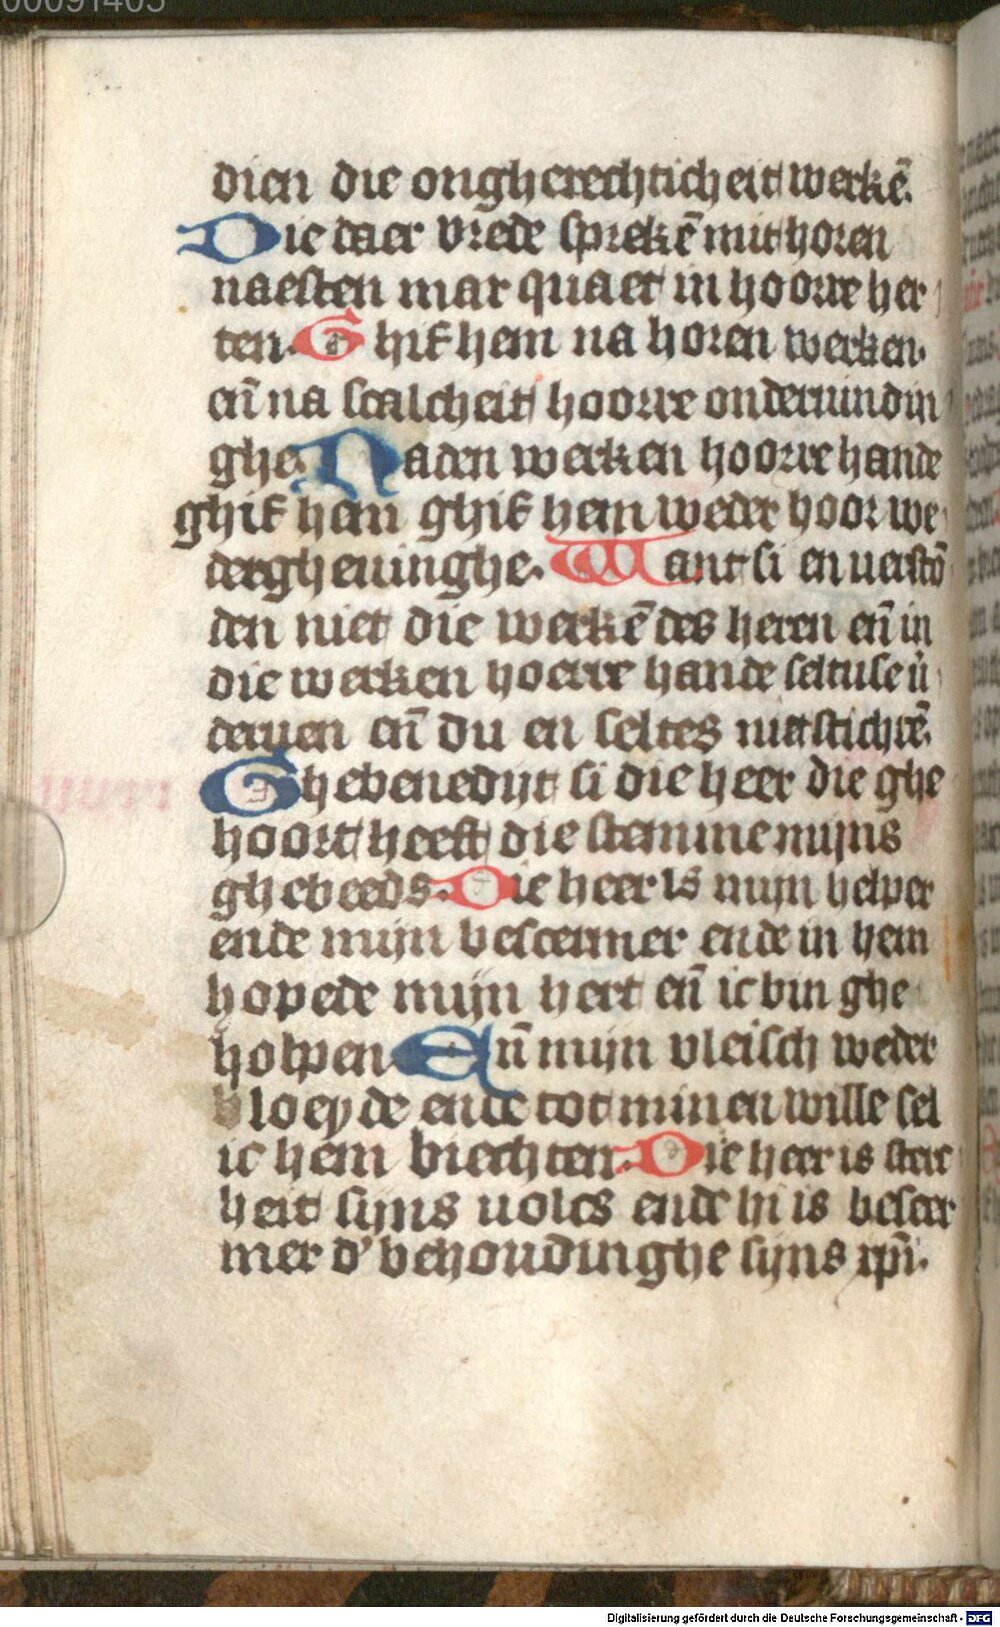 00091405
dien die ongherechticheit werkē.
Die daer vrede sprekē mit horen
naesten mar quaet in hoorre her
ten. Ghif hem na horen werken.
en̄ na scalcheit hoorre onderuindin
ghe. Na den werken hoorre hande
ghif hem ghif hem weder hoor we
dergheuinghe. Want si en verstō
den niet die werkē des heren en̄ in
die werken hoerre hande seltuse v̄
deruen en̄ du en seltes niet stichtē.
Ghebenedijt si die heer die ghe
hoort heeft die stemme mijns
ghebeeds. Die heer is mijn helper
ende mijn bescermer ende in hem
hopede mijn hert en̄ ic bin ghe
holpen. En̄ mijn vleisch weder
bloeyde ende tot minen wille sel
ic hem biechten. Die heer is sterc
heit sijns uolcs ende hi is bescer
mer d' behoudinghe sijns xpi̅.
Digitalisierung gefördert durch die Deutsche Forschungsgemeinschaft - DFG